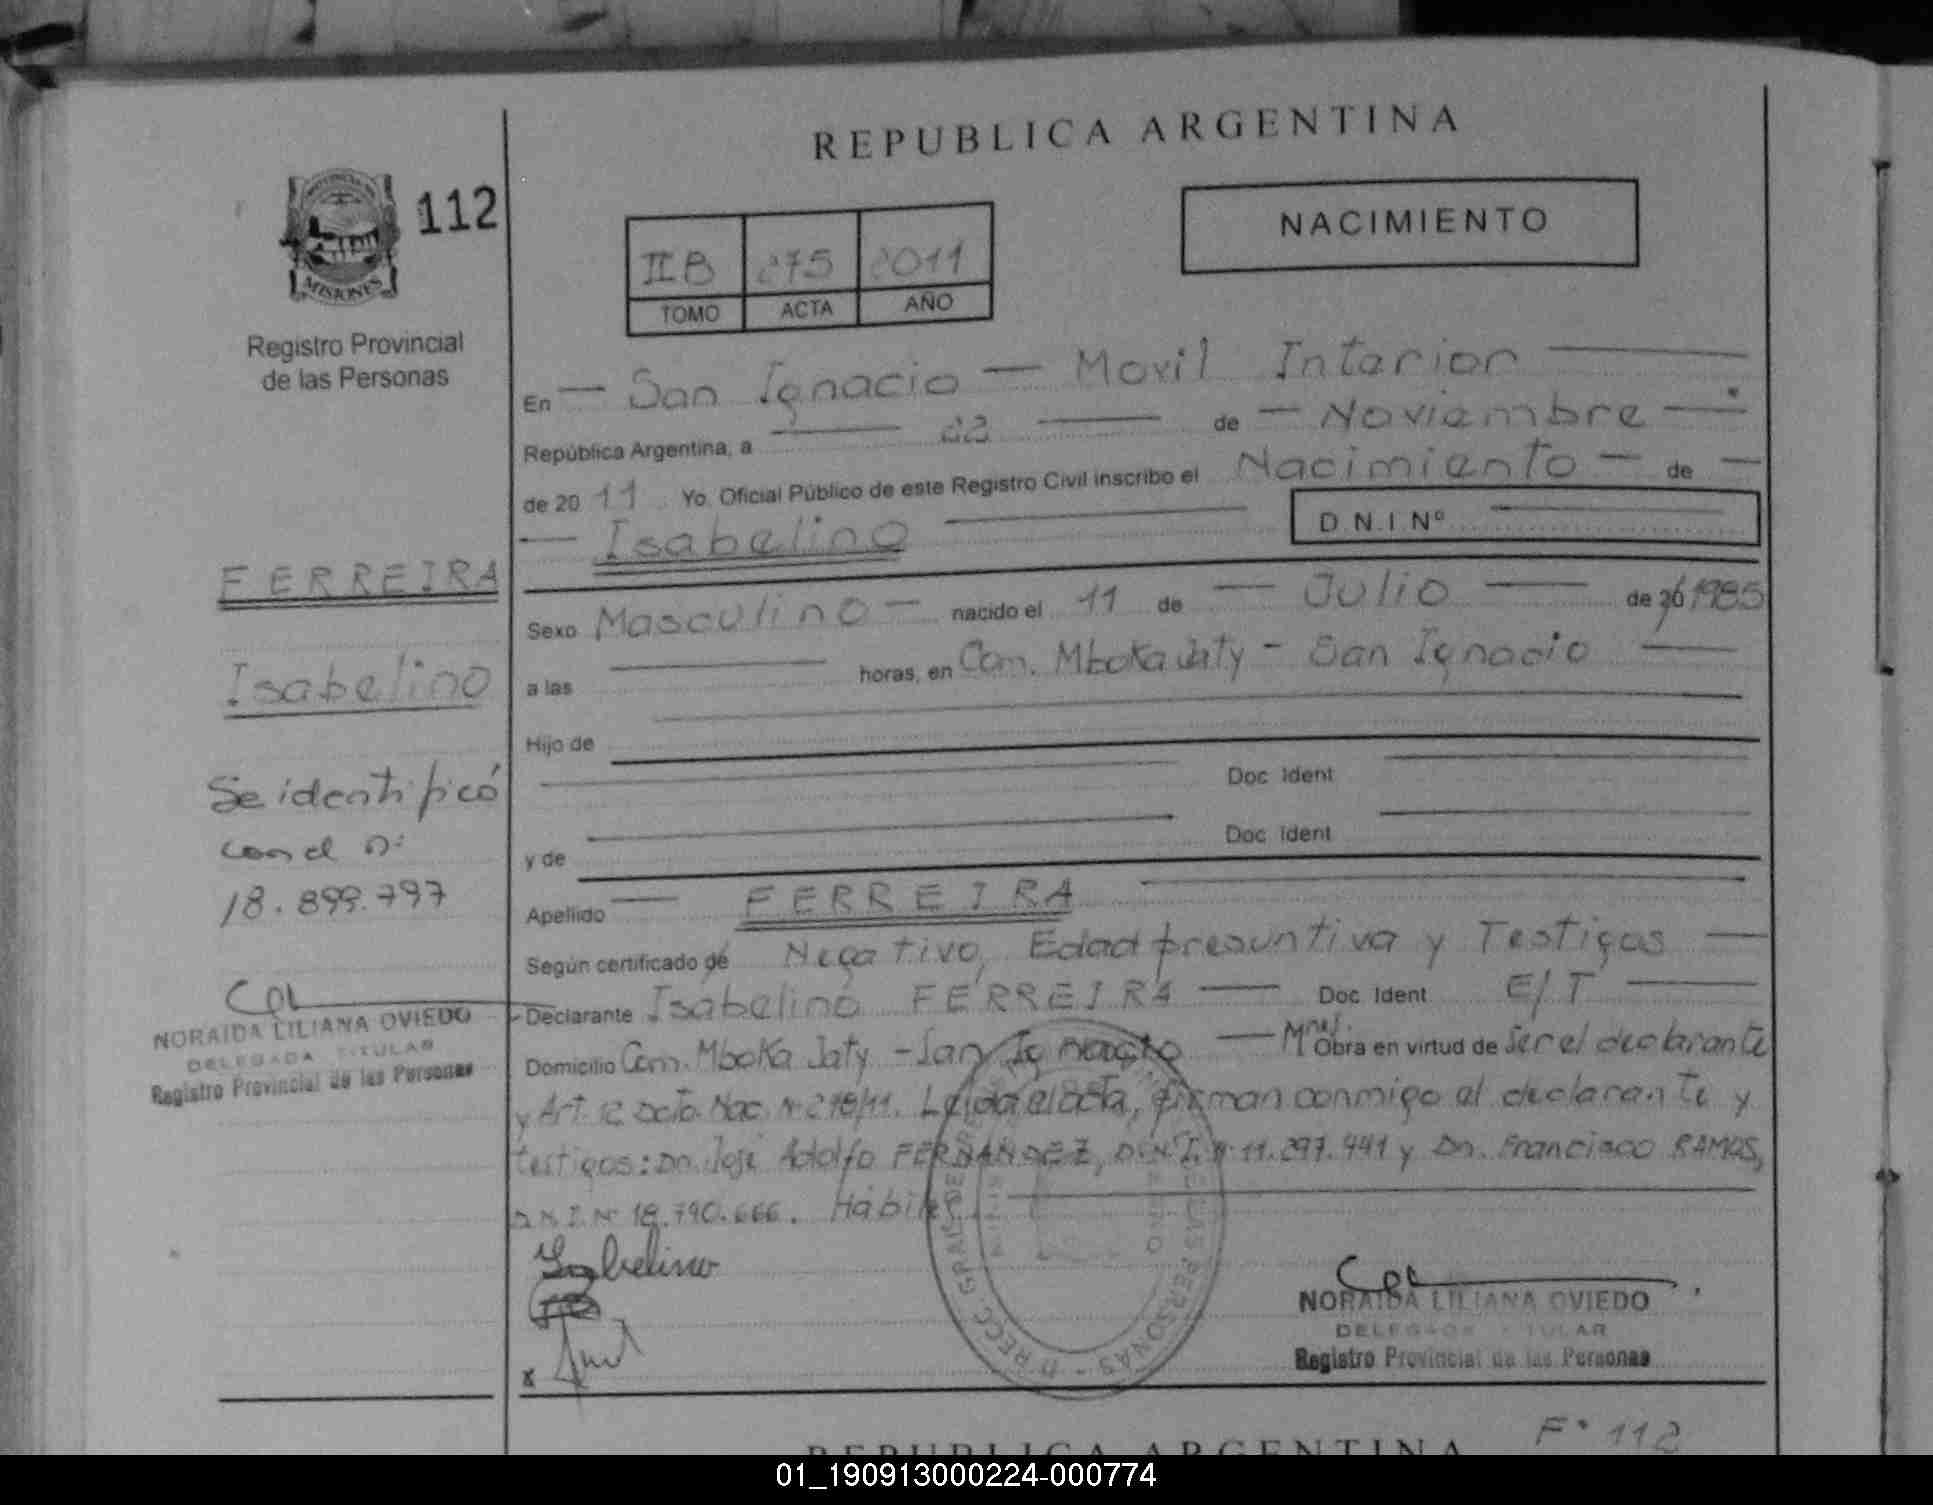 REPUBLICA ARGENTINA
112
MISIONES
Registro Provincial
de las Personas
NACIMIENTO
IIB 275 2011
TOMO ACTA AÑO
En — San Ignacio — Movil Interior —
República Argentina, a — 22 — de — Noviembre —
de 2011 Yo, Oficial Público de este Registro Civil inscribo el Nacimiento — de —
— Isabelino —
D.N.I. Nº —
FERREIRA
Isabelino
Se identificó
con el n:
18.899.797
NORAIDA LILIANA OVIEDO
DELEGADA TITULAR
Registro Provincial de las Personas
Sexo Masculino — nacido el 11 de — Julio — de 1985
a las — horas, en Com. Mboka Jaty - San Ignacio —
Hijo de —
— Doc. Ident —
y de — Doc. Ident —
Apellido — FERREIRA —
Según certificado de Negativo, Edad presuntiva y Testigos —
Declarante Isabelino FERREIRA — Doc. Ident E/T —
Domicilio Com. Mboka Jaty - San Ignacio — Mnes. Obra en virtud de Ser el declarante
y Art. 12 Dcto. Nac. Nº 278/11. Leída el acta, firman conmigo el declarante y
testigos: Dn. José Adolfo FERNANDEZ, D.N.I. Nº 11.297.441 y Dn. Francisco RAMOS,
D.N.I. Nº 18.790.666. Hábiles —
Isabelino
x
NORAIDA LILIANA OVIEDO
DELEGADA TITULAR
Registro Provincial de las Personas
Fº 112
REPUBLICA ARGENTINA
01_190913000224-000774